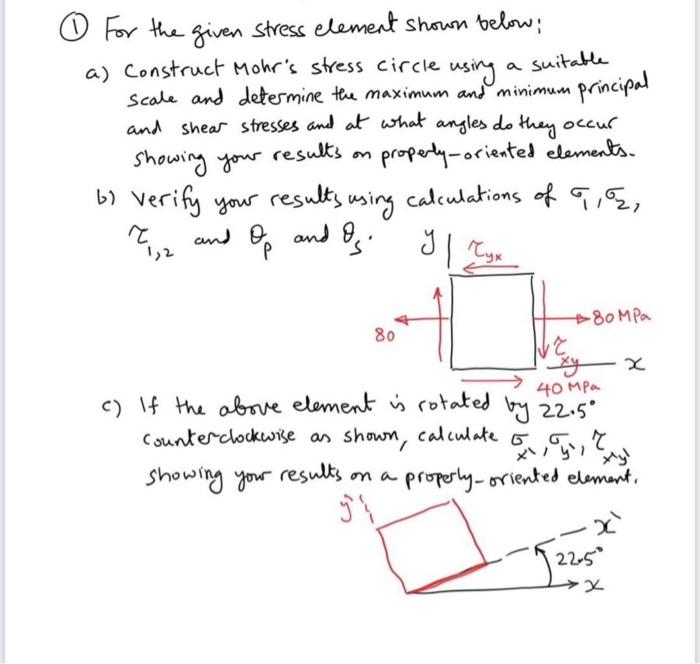 ① For the given stress element shown below:
a) Construct Mohr's stress circle using a suitable
scale and determine the maximum and minimum principal
and shear stresses and at what angles do they occur
showing your results on properly-oriented elements.
b) Verify your results using calculations of σ1, σ2,
τ1,2 and θp and θs.
y
τyx
80
80 MPa
τxy
x
40 MPa
c) If the above element is rotated by 22.5°
counterclockwise as shown, calculate σx', σy', τx'y'
showing your results on a properly-oriented element.
y'
x'
22.5°
x